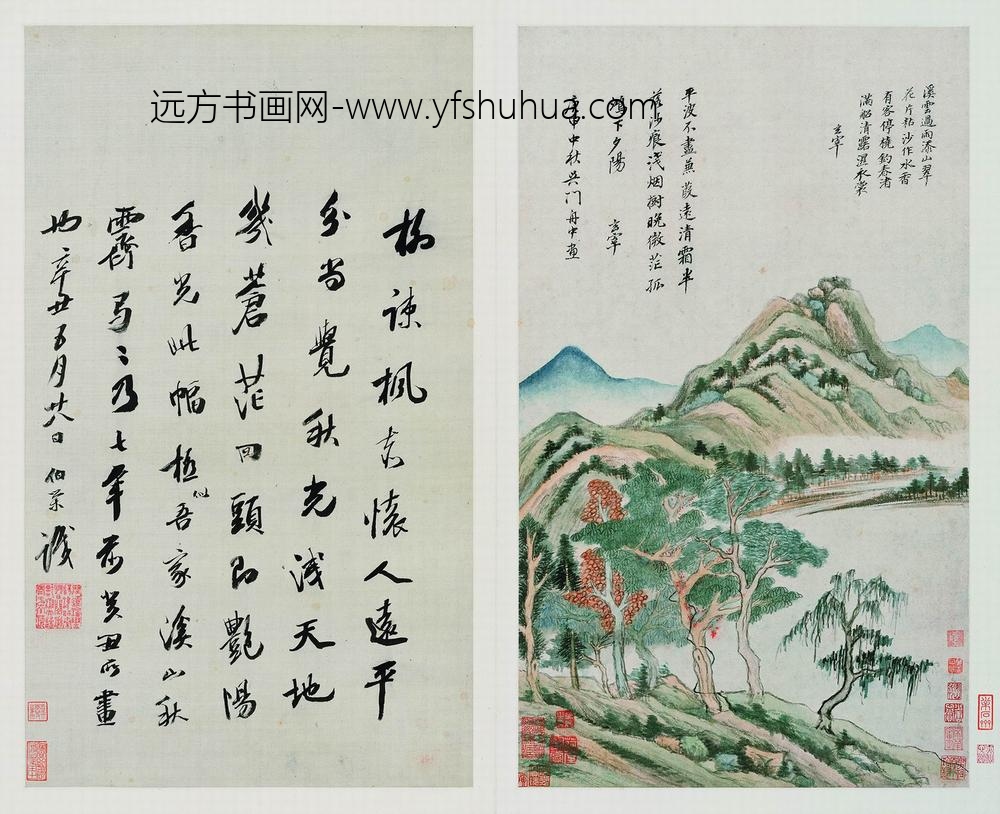 远方书画网-www.yfshuhua.com
溪雲過雨添山翠
花片粘沙作水香
有客停橈釣春渚
滿船清露濕衣裳
玄宰
平波不盡蒹葭遠清霜半
落沙痕淺烟樹晚微茫孤
鴻下夕陽 玄宰
庚申中秋吳門舟中畫
柳疎楓老懷人遠平
分尚覺秋光淺天地
幾蒼茫回頭即艷陽
香光此幅極似吾家溪山秋
霽乃七年前癸丑所畫
也辛丑五月廿八日伯榮識